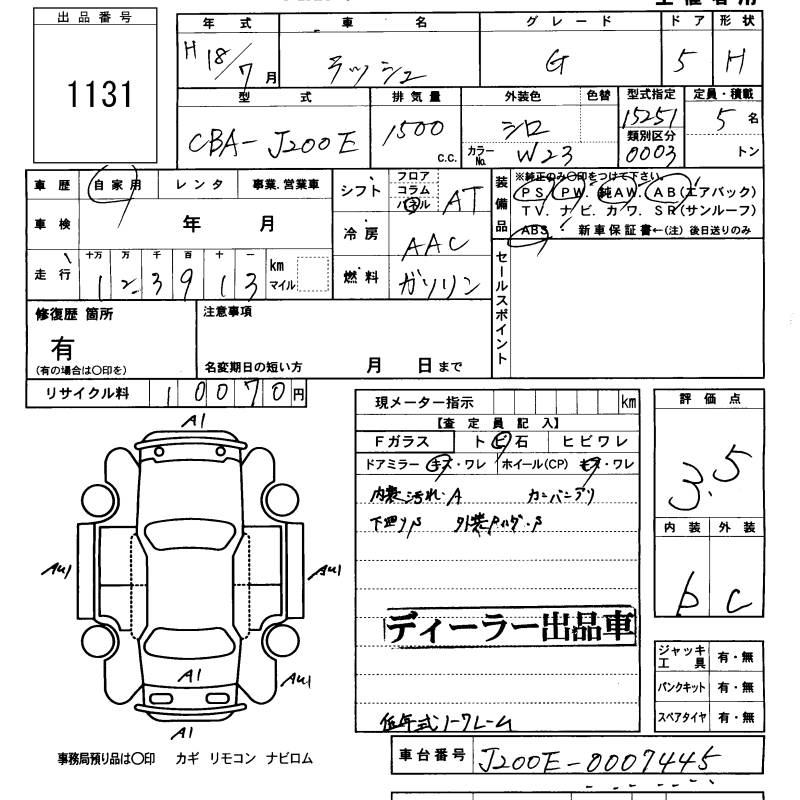 出品番号
1131
年式 車名 グレード ドア 形状
H 18/7月 ラッシュ G 5 H
型式 排気量 外装色 色替 型式指定 定員・積載
CBA-J200E 1500 c.c. シロ 15251 5名
カラーNo. W23 類別区分 0003 トン
車歴 自家用 レンタ 事業.営業車
車検 年 月
走行 十万 万 千 百 十 一 km マイル
1 2 3 9 1 3
シフト フロア コラム パネル AT
冷房 AAC
燃料 ガソリン
装備品 ※純正のみ○印をつけて下さい。
PS. PW. 純AW. AB(エアバック)
TV. ナビ. カワ. SR(サンルーフ)
ABS 新車保証書←(注) 後日送りのみ
セールスポイント
修復歴 箇所
有
(有の場合は○印を)
注意事項
名変期日の短い方 月 日まで
リサイクル料 10070円
現メーター指示 km
【査定員記入】
Fガラス ト ビ 石 ヒビワレ
ドアミラー キズ・ワレ ホイール(CP) キズ・ワレ
内装汚れ・A
下廻りP
ディーラー出品車
評価点
3.5
内装 外装
b c
ジャッキ工具 有・無
パンクキット 有・無
スペアタイヤ 有・無
A1
AU1 AU1
A1 AU1
A1
事務局預り品は○印 カギ リモコン ナビロム
車台番号 J200E-0007445